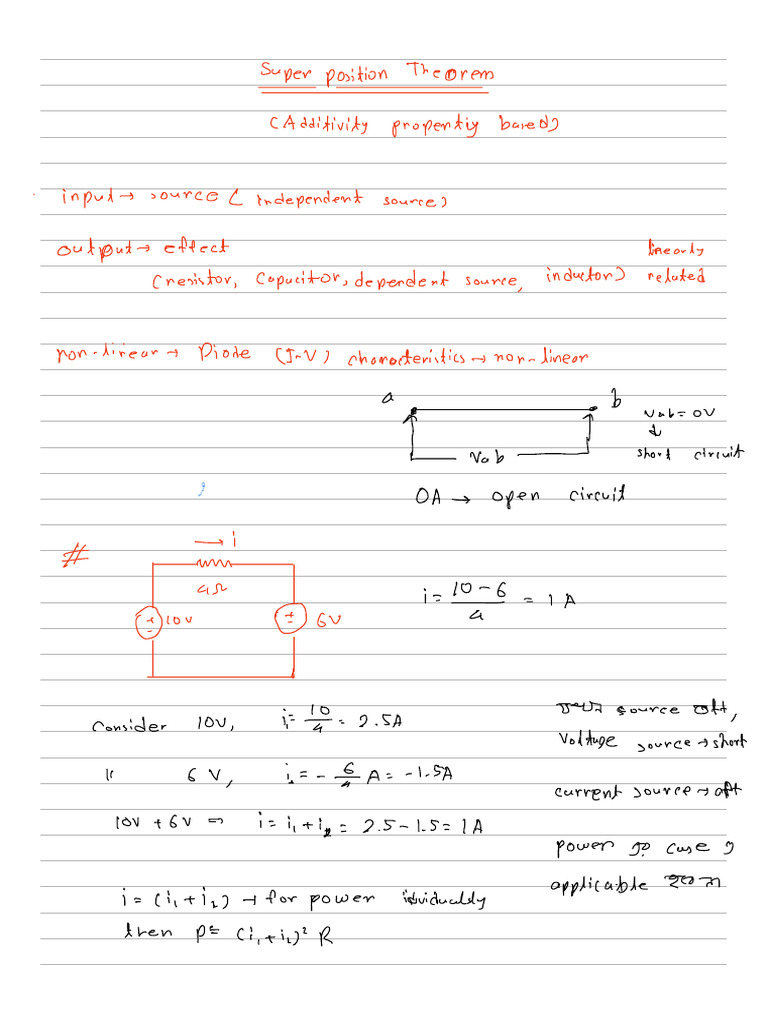 Super position Theorem
(Additivity propentiy bared)
input → source ( independent source)
output → effect
linearly
(resistor, Capacitor, dependent source, inductor) related
non-linear → Diode (I-V) characteristics → non-linear
a b
Vab = 0V
↓
Vab
short circuit
0A → open circuit
#
→ i
4Ω
10V
6V
i = 10-6 / 4 = 1 A
Consider 10V, i = 10/4 = 2.5A
source off,
Voltage source → short
" 6 V, i₂ = - 6/4 A = -1.5A
current source → off
10V + 6V ⇒ i = i₁ + i₂ = 2.5 - 1.5 = 1A
power এর case এ
applicable
i = (i₁ + i₂) → for power individually
then p = (i₁ + i₂)² R